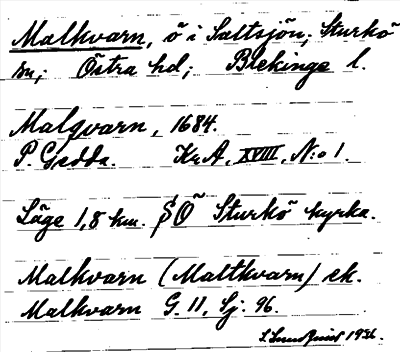 Malkvarn, ö i Saltsjön; Sturkö
sn; Östra hd; Blekinge l.
Malqvarn, 1684.
P. Gedda. Kr.A, XVIII, N:o 1.
Läge 1,8 km. SÖ Sturkö kyrka.
Malkvarn (Maltkvarn) ek.
Malkvarn G. 11, Sj. 96.
1936.